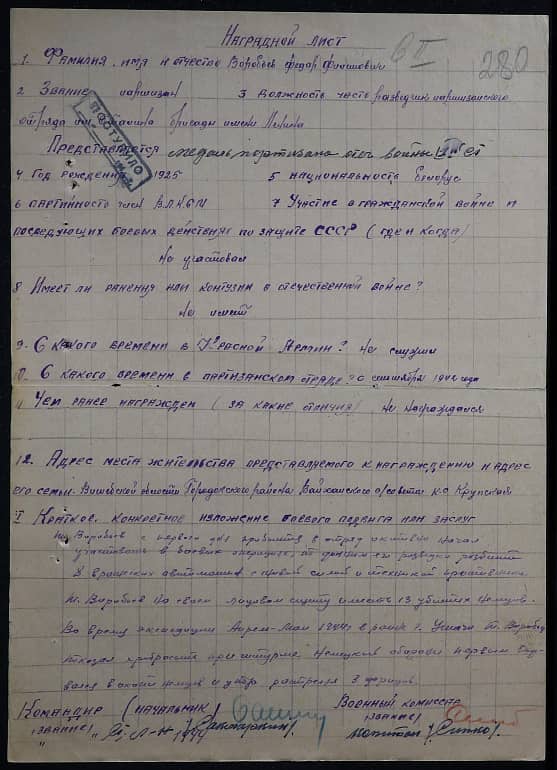 Наградной лист
6 II
280
1. Фамилия, имя и отчество Воробьев Федор
2 Звание партизан 3 Должность часть разведчик партизанского
отряда им. бригады имени Ленина
ПОСТУПИЛО
Представляется медаль партизана отеч войны
4 Год рождения 1925 5 национальность Белорус
6 партийность член ВЛКСМ 7 Участие в гражданской войне и
последующих боевых действиях по защите СССР (где и когда)
Не участвовал
8 Имеет ли ранения или контузии в отечественной войне?
Не имеет
9. С какого времени в Красной Армии? Не служил
10. С какого времени в партизанском отряде? с сентября 1942 года
11 Чем ранее награжден (за какие отличия) Не награждался
12. Адрес места жительства представляемого к награждению и адрес
его семьи. Витебской области Городокского района с/совета к-с Крупской
I Краткое, конкретное изложение боевого подвига или заслуг
Воробьев с первого дня прибытия в отряд активно начал
участвовать в боевых по данным его разведки разбит
8 вражеских автомашин с живой силой и техникой противника.
т. Воробьев на своем лицевом счету имеет 13 убитых немцев.
Во время экспедиции Апрель-Май 1944г в районе г. Ушачи т. Воробьев
показал храбрость при штурме немецкой обороны первым
вался в окоп немцев и расстрелял 3 фрицев.
Командир (начальник) Военный комиссар
(звание) (звание)
капитан